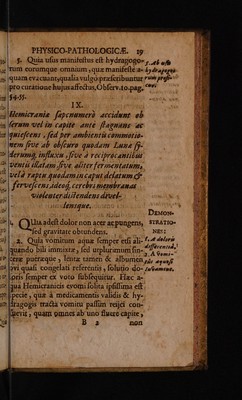 PHYSICO-PATHOLOGICÆ. 19
5. Quia usus manifestus est hydragogo-
rum eorumque omnium, quæ manifeste a-
quam evacuant, qualia vulgo præscribuntur
pro curatione hujus affectus, Observ. 10. pag.
54. 55.
5. Ab usu
hydragogo-
IX.
Hemicraniæ sæpenumerò accidunt ob
serum vel in capite ante stagnans ac
quiescens, sed per ambientis commotio-
nem sive ab obscuro quodam Lunæ sy-
derumq; influxu, sive à reciprocantibus
ventis illatam sive aliter fermentatum,
vel à rapen quodam in caput delatum &
fervescens, ideoq; cerebri membranas
violenter distendens divel-
lensque.
DEMON-
STRATIO-
NES:
1. Quia adest dolor non acer ac pungens,
sed gravitate obtundens.
2. Quia vomitum aquæ semper etsi ali-
quando bili immixtæ, sed ut plurimum sin-
ceræ puræque, lentæ tamen & albuminis
ovi quasi congelati referentis, solutio do-
loris semper ex voto subsequitur. Hæc a-
qua Hemicranicis evomi solita ipsissima est
specie, quæ à medicamentis validis & hy-
dragogis tracta vomitu passim rejici con-
spevit, quam omnes ab uno fluere capite,
1. A doloris
differentiâ,
2. A Vomi-
B 2 non